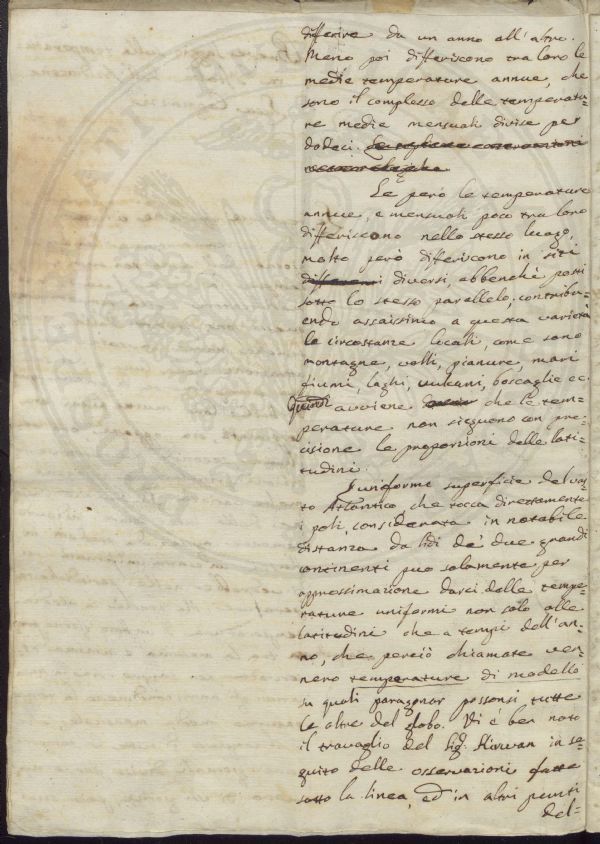 differire da un anno all'altro.
Meno poi differiscono tra loro le
medie temperature annue, che
sono il complesso delle temperatu-
re medie mensuali divise per
dodeci.
Se però le temperature
annue, e mensuali poco tra loro
differiscono nello stesso luogo,
molto però differiscono in siti
differenti diversi, abbenchè posti
sotto lo stesso parallelo; contribu-
endo assaissimo a questa varietà
le circostanze locali, come sono
montagne, valli, pianure, mari
fiumi, laghi, vulcani, boscaglie ec.
Quindi avviene che le tem-
perature non sieguono con pre-
cisione le proporzioni delle lati-
tudini.
L'uniforme superficie del vas-
to Atlantico, che tocca direttamente
i poli, considerata in notabile
distanza da lidi de' due grandi
continenti può solamente per
approssimazione darci delle tempe-
rature uniformi non solo alle
latitudini che a tempi dell'an-
no, che perciò chiamate ven-
nero temperature di modello
su quali paragonar possonsi tutte
le altre del globo. Vi è ben noto
il travaglio del Sig. Kirwan in se-
guito delle osservazioni fatte
sotto la linea, ed in altri punti
del-